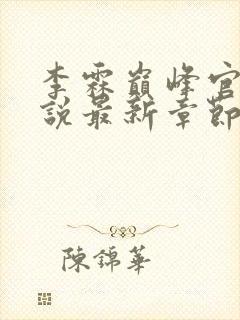 李霖巔峰官
說最新章節
陳錦華